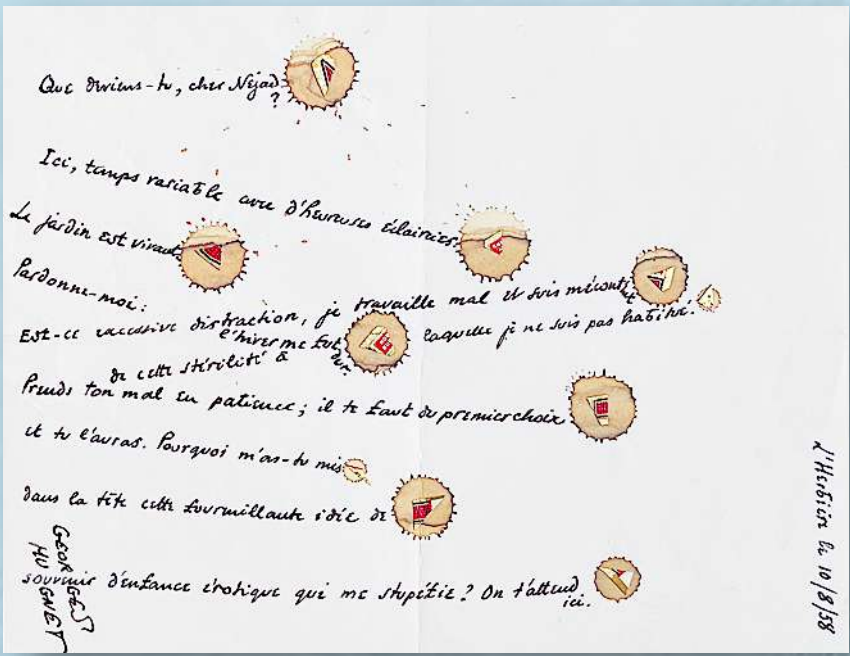 Que deviens-tu, cher Nejad
?
Ici, temps variable avec d'heureuses éclaircies.
Le jardin est vivant.
Pardonne-moi :
je travaille mal et suis mécontent
Est-ce excessive distraction,
l'hiver me fut dur.
laquelle je ne suis pas habitué.
de cette stérilité à
Prends ton mal en patience ; il te faut du premier choix
et tu l'auras. Pourquoi m'as-tu mis
dans la tête cette fourmillante idée de
souvenir d'enfance érotique qui me stupéfie ? On t'attend
ici.
GEORGES
HUGNET
L'Herbière le 10/8/58